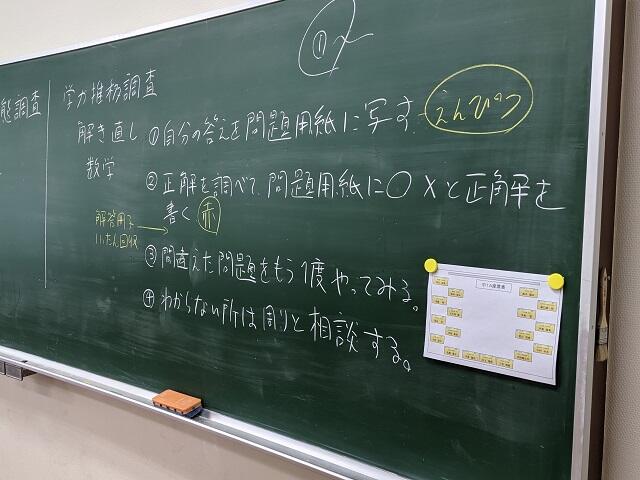 ①
態調査
学力推移調査
解き直し
数学
①自分の答えを問題用紙に写す。えんぴつ
②正解を調べて、問題用紙に○×と正解を
書く 赤
解答用紙
いったん回収
③間違えた問題をもう1度やってみる。
④わからない所は周りと相談する。